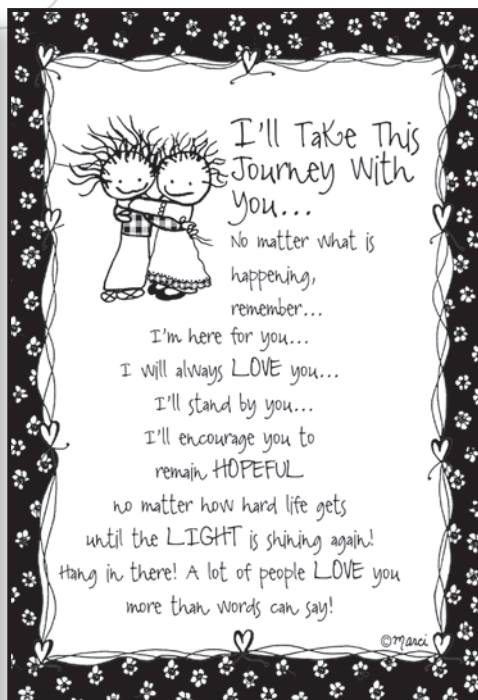 I'll Take This
Journey With
You...
No matter what is
happening,
remember...
I'm here for you...
I will always LOVE you...
I'll stand by you...
I'll encourage you to
remain HOPEFUL
no matter how hard life gets
until the LIGHT is shining again!
Hang in there! A lot of people LOVE you
more than words can say!
©Marci